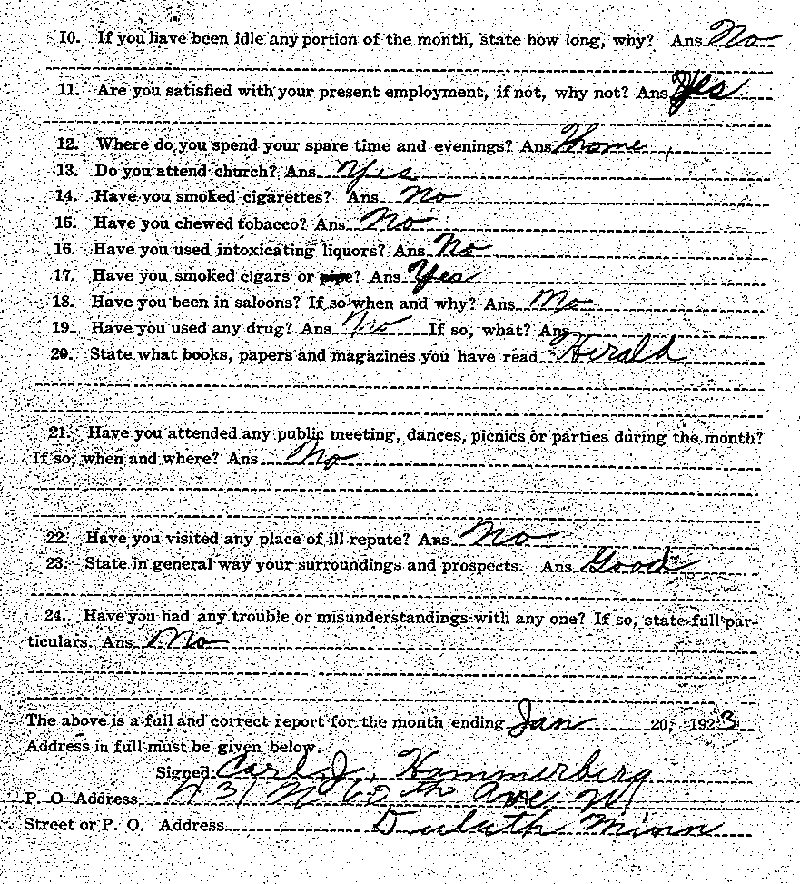 10. If you have been idle any portion of the month, state how long, why? Ans No
11. Are you satisfied with your present employment, if not, why not? Ans Yes
12. Where do you spend your spare time and evenings? Ans home
13. Do you attend church? Ans Yes
14. Have you smoked cigarettes? Ans No
15. Have you chewed tobacco? Ans No
16. Have you used intoxicating liquors? Ans No
17. Have you smoked cigars or pipe? Ans Yes
18. Have you been in saloons? If so when and why? Ans No
19. Have you used any drug? Ans No If so, what? Ans
20. State what books, papers and magazines you have read Herald
21. Have you attended any public meeting, dances, picnics or parties during the month?
If so, when and where? Ans No
22. Have you visited any place of ill repute? Ans No
23. State in general way your surroundings and prospects. Ans Good
24. Have you had any trouble or misunderstandings with any one? If so, state full par-
ticulars. Ans No
The above is a full and correct report for the month ending Jan 20, 1923
Address in full must be given below.
Signed Carl J. Hammerberg
P. O Address 31 N 60th Ave W
Street or P. O. Address Duluth Minn